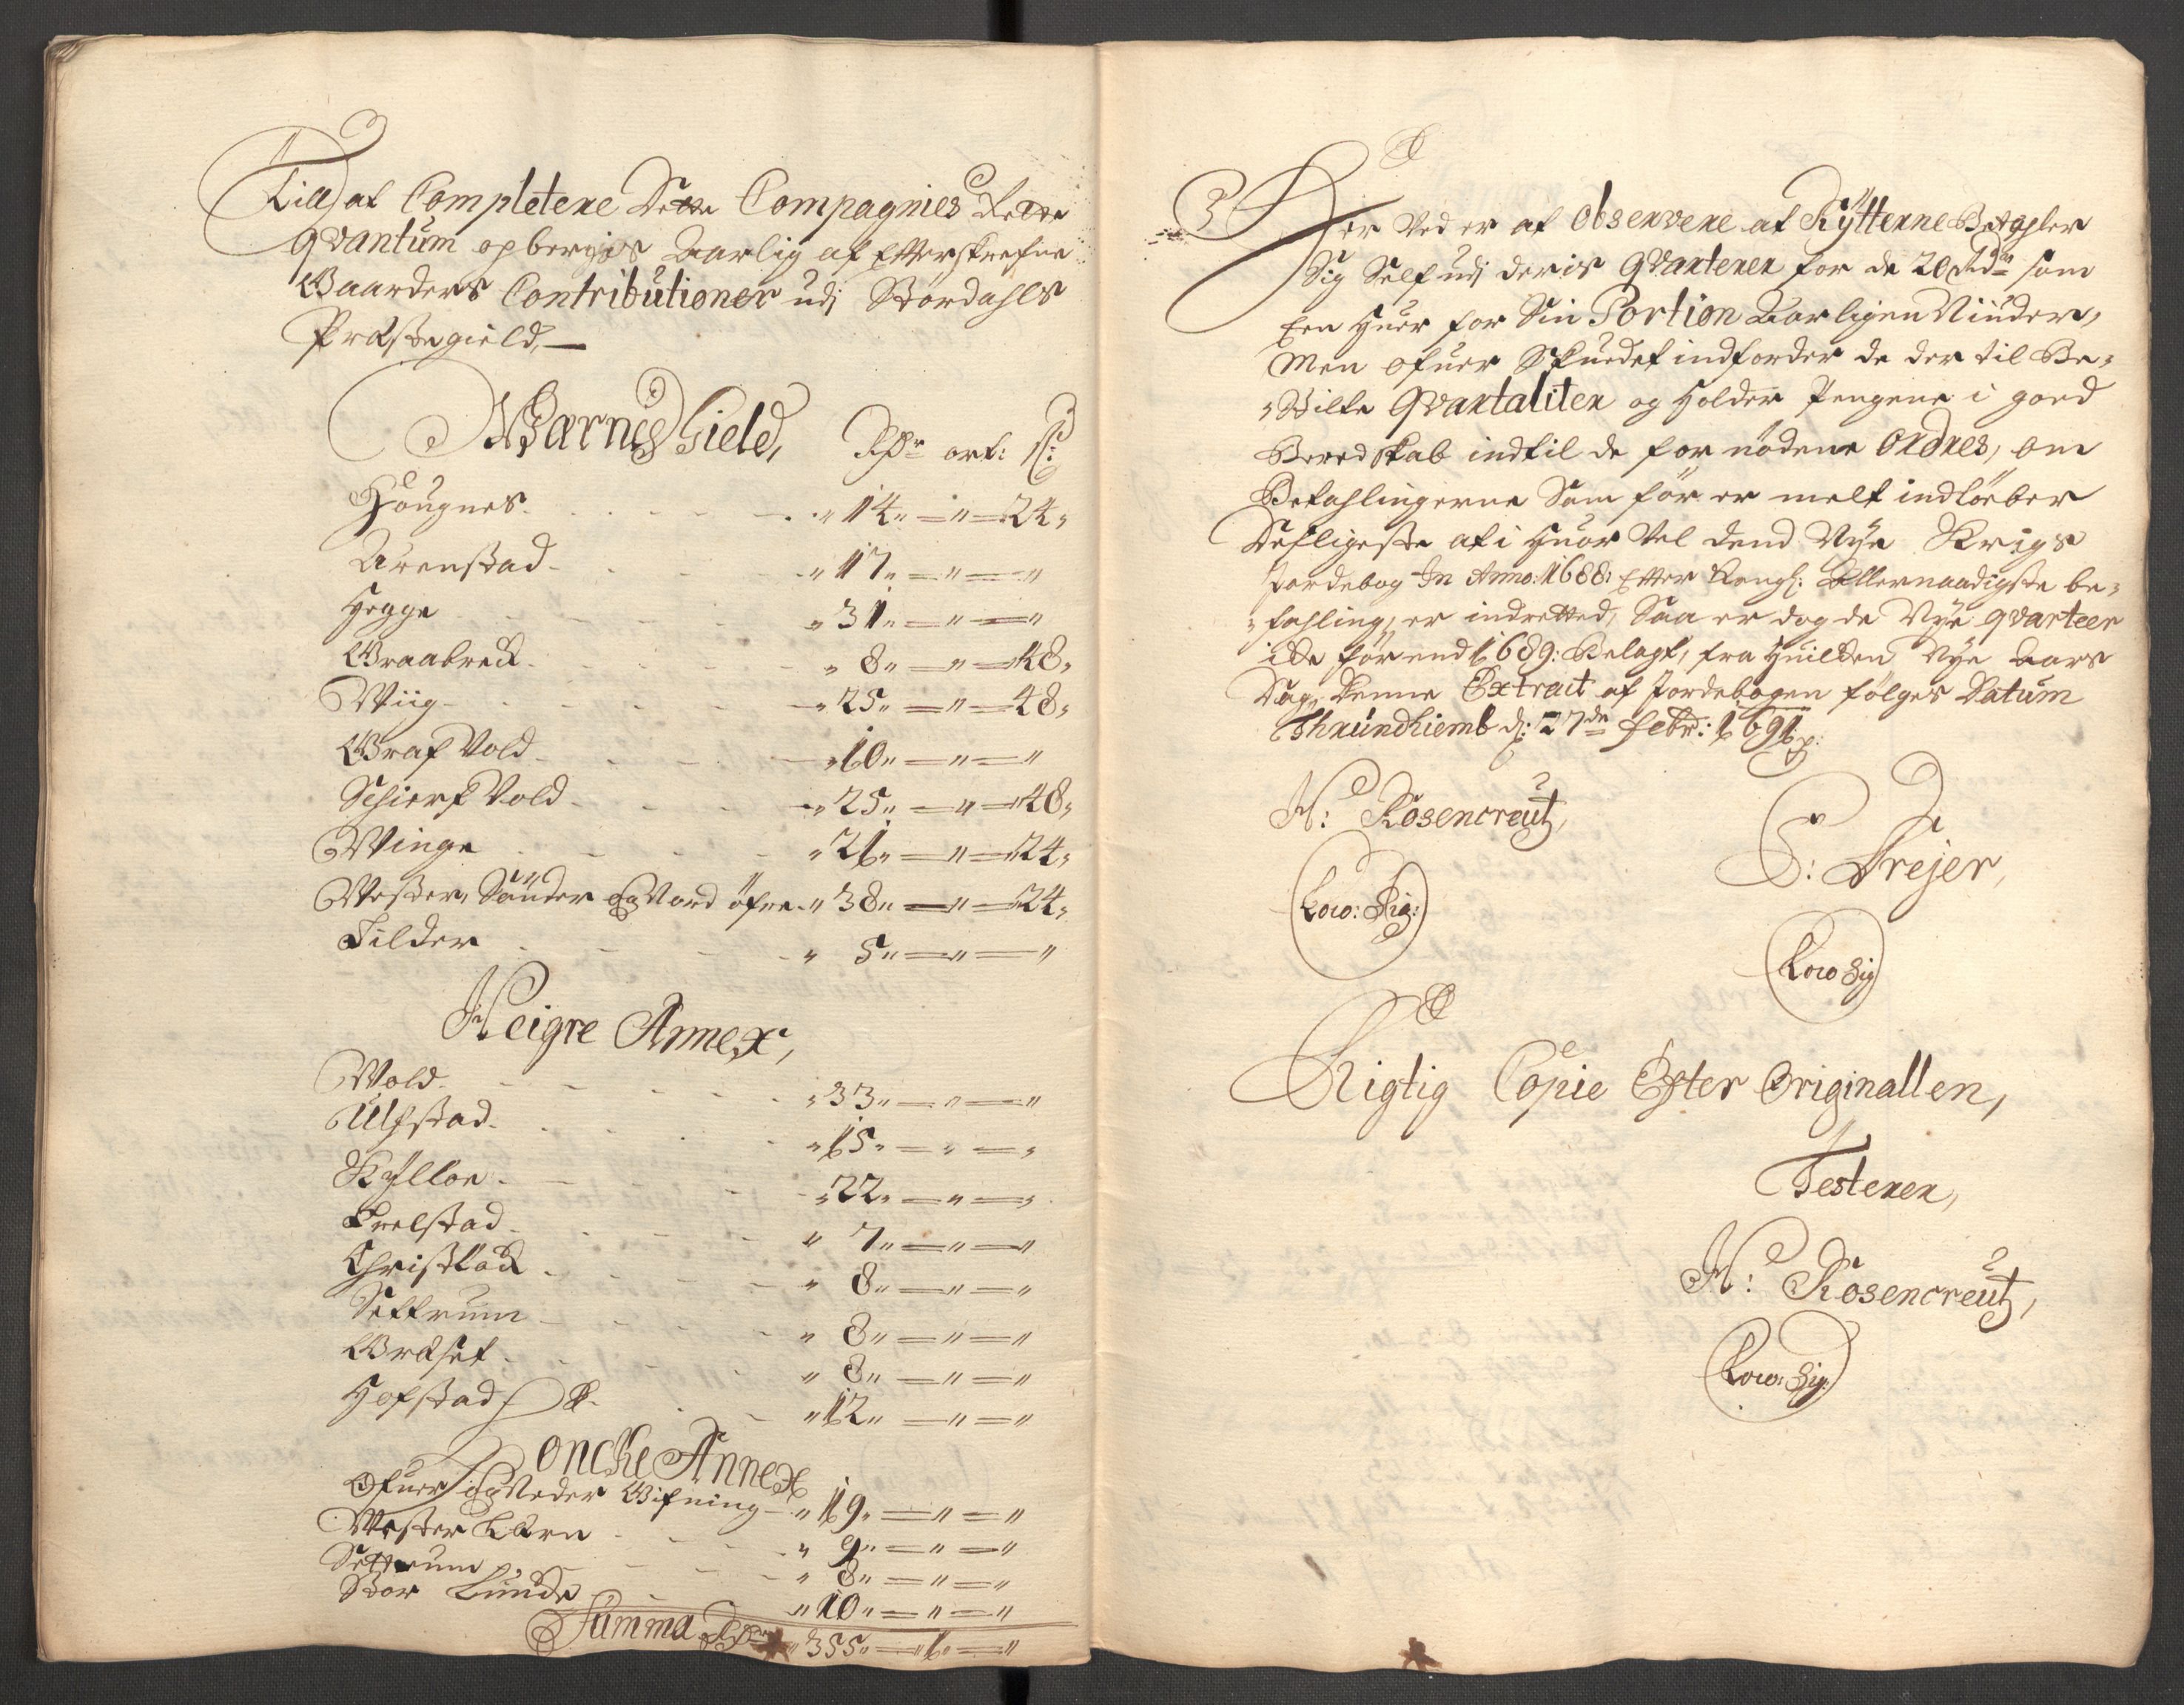 Till at Completere Dette Compagnies Rette
Qvantum opbergis Aarlig af Efterskrefne
Gaarders Contributioner udj Størdahls
Præstegield,
Wærnes Gield, Rdr ort: s:
Hougnes " 14 " — " — 24 "
Arenstad " 17 " — " — "
Hegge " 31 " — " — "
Graabreck " 8 " — " — 48 "
Wiig " 25 " — " — 48 "
Graf Vold " 10 " — " — "
Schierf Vold " 25 " — " — 48 "
Winge " 21 " — " — 24 "
Wester, Sønder og Nord øfre " 38 " — " — 24 "
Tilder " 5 " — " — "
Heigre Annex,
Wold " 33 " — " — "
Ulfstad " 15 " — " — "
Kylloe " 22 " — " — "
Trelstad " 7 " — " — "
Christlod " 8 " — " — "
Settrum " 8 " — " — "
Græset " 8 " — " — "
Hofstad " 12 " — " — "
Loncke Annex
Ofuer og Neder Wifning " 19 " — " — "
Wester Kærn " 9 " — " — "
Settrum " 8 " — " — "
Stor Lunde " 10 " — " — "
Summa Rdr " 355 " — 1 " — "
Her Ved er at observere at Rÿtterne Betahler
Sig Self udj deris Qvarterer for de 20 Rdr som
Een Huer for Sin Portion Aarligen Niuder,
Men ofuer Skuedet indforder de der til Be-
-Vilte Qvantaliter og Holder Pengene i goed
Beredskab indtil de fornødene Ordres, om
Betahlingerne Som før er melt indløeber
Desligeste at i Huor Vel dend Nÿe Krigs
Jordebog In Anno: 1688: Efter Kongl: Allernaadigste be-
-fahling, er indretted, Saa er dog de Nÿe qvarteer
icke før end 1689: Belagt, fra Huilken Nÿe Aars
Dag, denne Extract af Jordebogen følger Datum
Thrundhiemb d: 27de Febr: 1691 p:
H: Rosencreutz,
C: Drejer,
Loco: Sig:
Loco Sig
Rigtig Copie Efter Originallen,
Testerer,
H: Rosencreutz,
Loco: Sig: